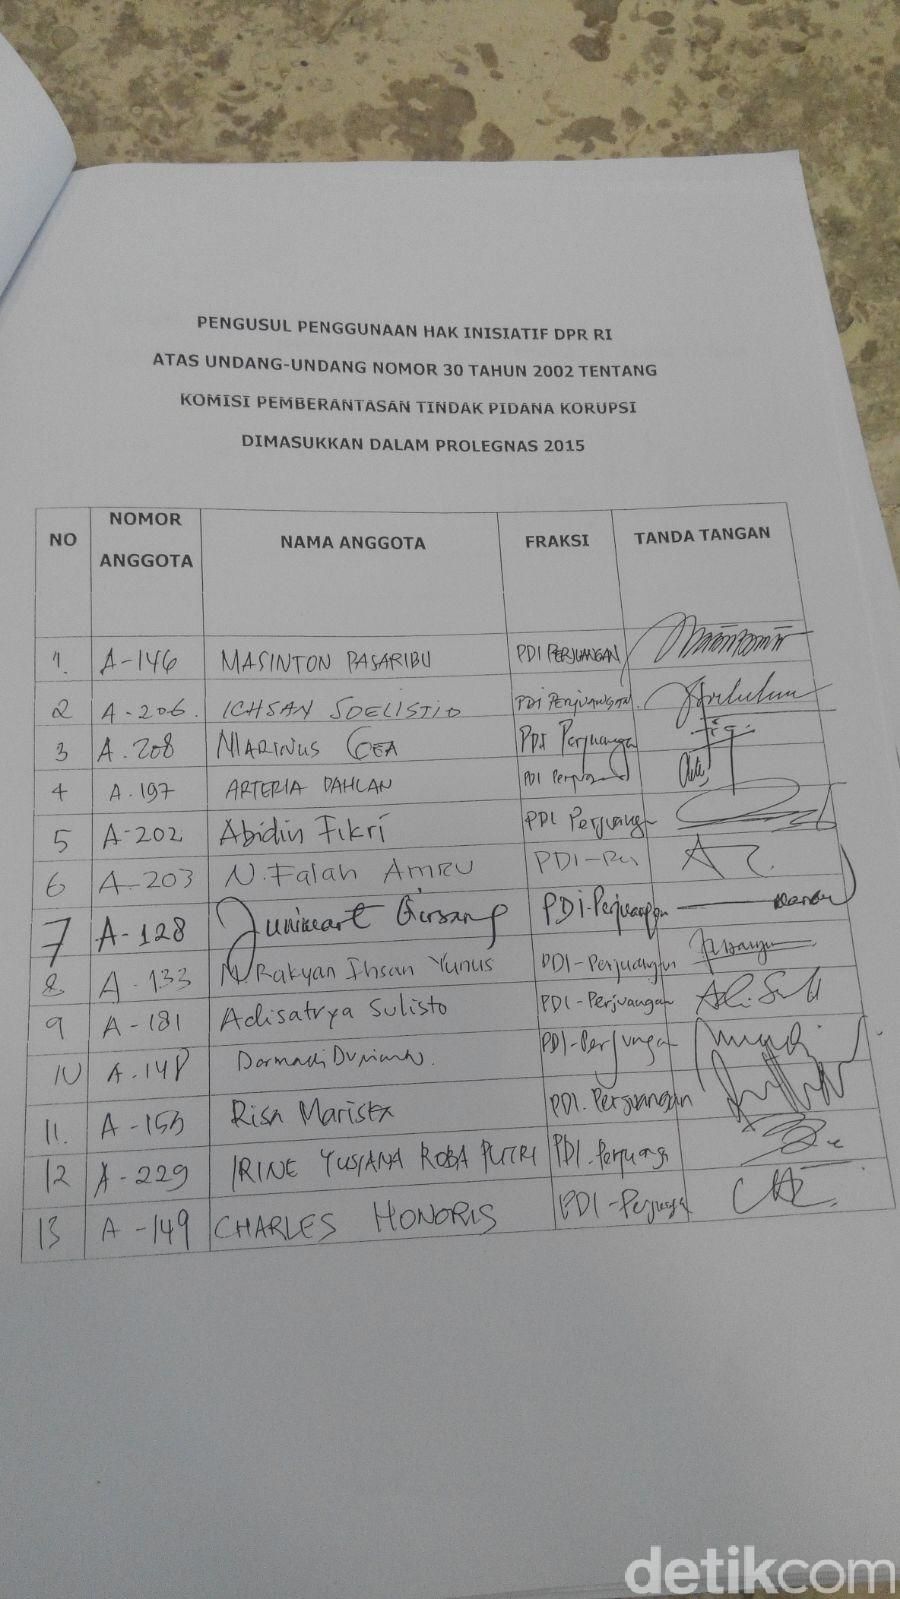 PENGUSUL PENGGUNAAN HAK INISIATIF DPR RI
ATAS UNDANG-UNDANG NOMOR 30 TAHUN 2002 TENTANG
KOMISI PEMBERANTASAN TINDAK PIDANA KORUPSI
DIMASUKKAN DALAM PROLEGNAS 2015
NO NOMOR ANGGOTA NAMA ANGGOTA FRAKSI TANDA TANGAN
1. A-146 MASINTON PASARIBU PDI PERJUANGAN
2 A-206. ICHSAN SOELISTIO PDI PERJUANGAN.
3 A.208 MARINUS GEA PDI Perjuanga
4 A.197 ARTERIA DAHLAN PDI
5 A-202 Abidin Fikri PDI Perjuanga
6 A-203 N. Falah AMRU PDI-
7 A-128 Junimart Girsang PDi-Perjuangan
8 A-133 M. Rakyan Ihsan Yunus PDI-Perjuangan
9 A-181 Adisatrya Sulisto PDI-Perjuangan
10 A.148 Darmadi Durianto. PDI-Perjuangan
11. A-155 Risa Mariska PDI.Perjuangan
12 A-229 IRINE YUSIANA ROBA PUTRI PDI.Perjuangi
13 A-149 CHARLES HONORIS PDI-Perjuanga
detikcom